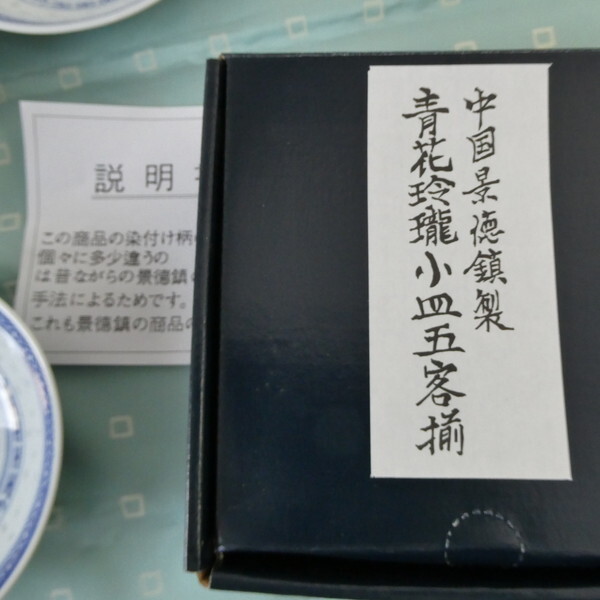 中国景徳鎮製
青花玲瓏小皿五客揃
説明
この商品の染付け柄
個々に多少違うの
は昔ながらの景徳鎮
手法によるためです。
これも景徳鎮の商品の